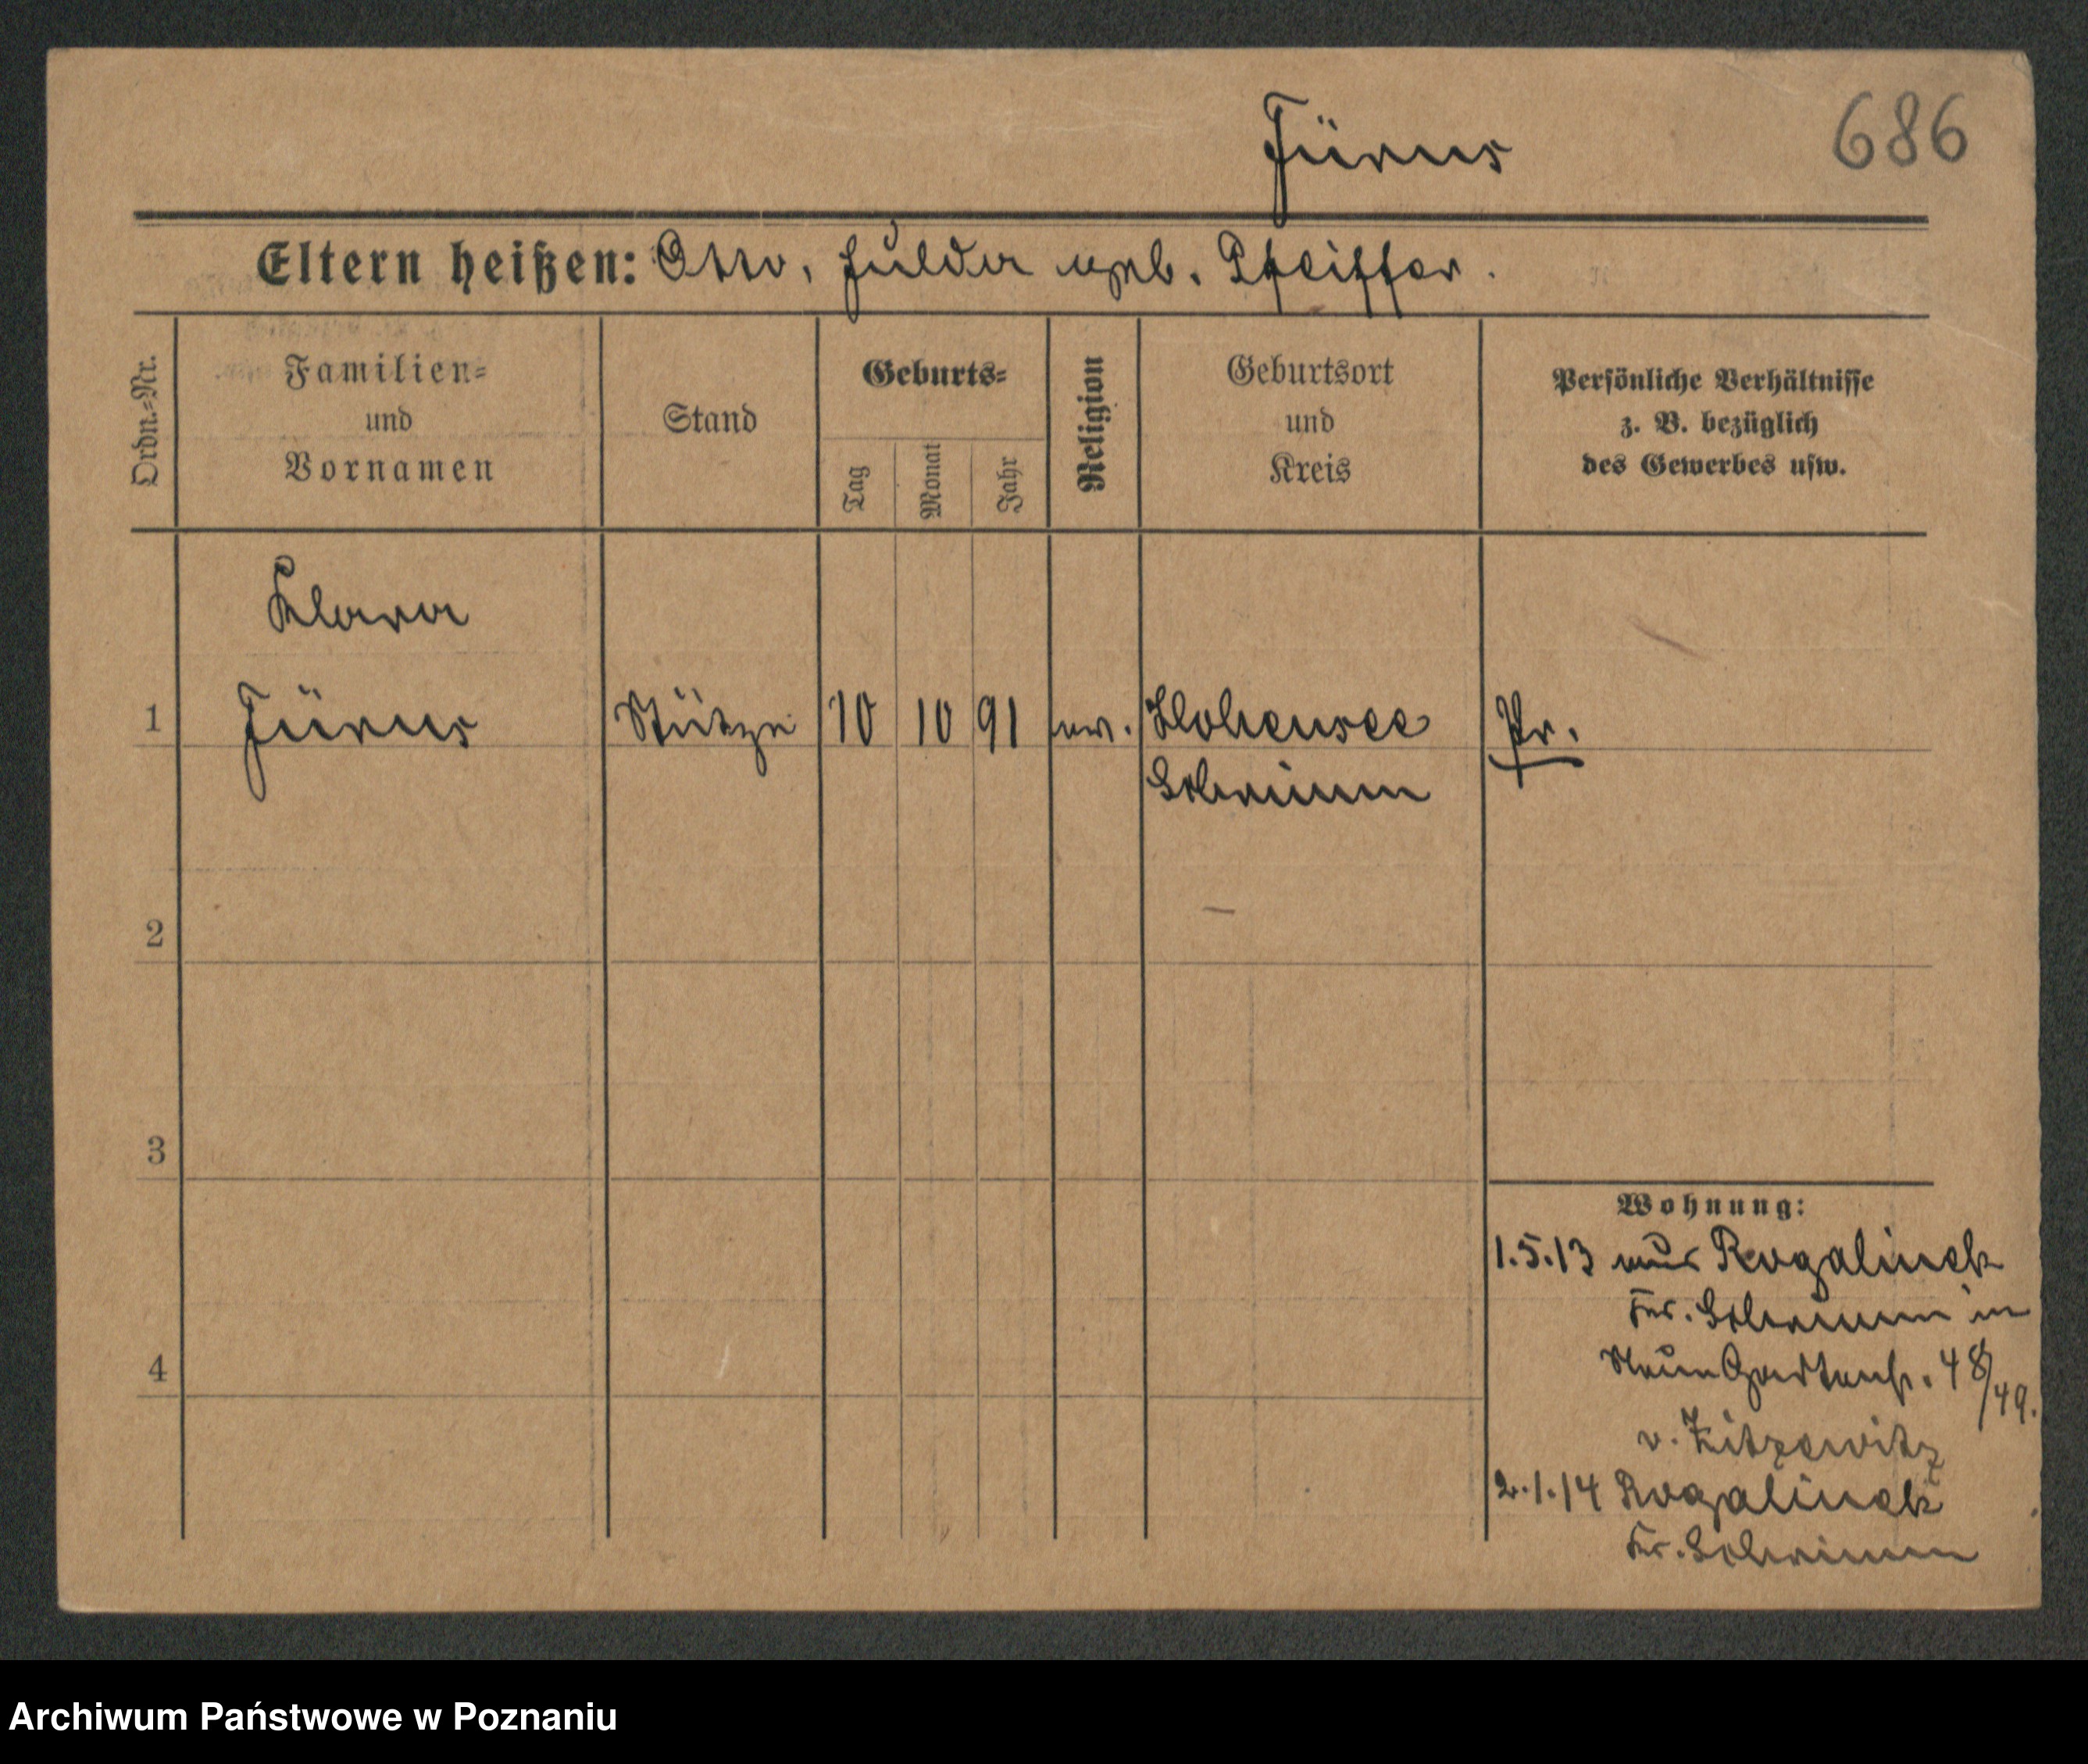 Jürns 686
Eltern heißen: Otto, Hulda geb. Pfeiffer.
Ordn.-Nr.
Familien-
und
Vornamen
Stand
Geburts-
Tag
Monat
Jahr
Religion
Geburtsort
und
Kreis
Persönliche Verhältnisse
z. B. bezüglich
des Gewerbes usw.
Klara
1 Jürns Stütze 10 10 91 ev. Hohensee Pr.
Schrimm
2
3
4
Wohnung:
1.5.13 aus Rogalinek
Krs. Schrimm in
Neue Gartenstr. 48/49.
v. Zitzewitz
2.1.14 Rogalinek
Kr. Schrimm
Archiwum Państwowe w Poznaniu